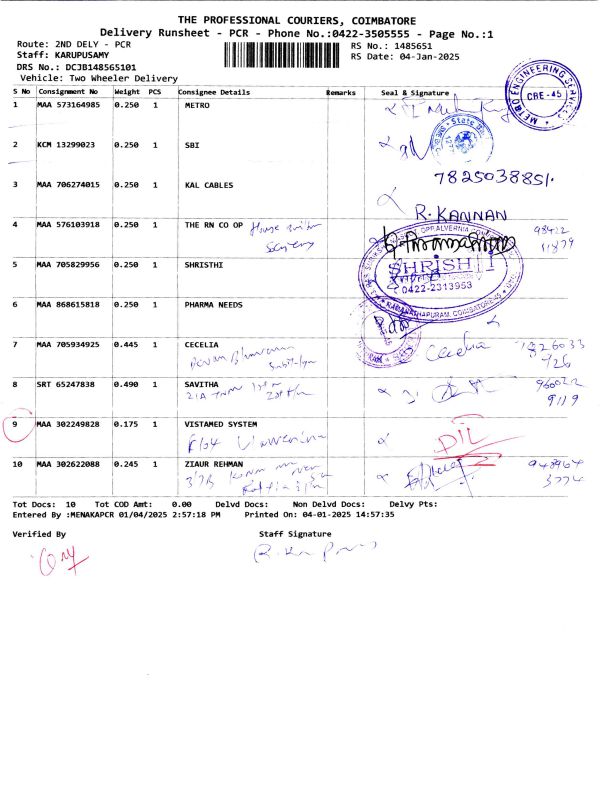 THE PROFESSIONAL COURIERS, COIMBATORE
Delivery Runsheet - PCR - Phone No.:0422-3505555 - Page No.:1
Route: 2ND DELY - PCR
RS No.: 1485651
Staff: KARUPUSAMY
RS Date: 04-Jan-2025
DRS No.: DCJB148565101
Vehicle: Two Wheeler Delivery
S No Consignment No Weight PCS Consignee Details Remarks Seal & Signature
METRO ENGINEERING SERVICES
CBE - 45
1 MAA 573164985 0.250 1 METRO
State Ba
2 KCM 13299023 0.250 1 SBI
3 MAA 706274015 0.250 1 KAL CABLES 7825038851.
R. KANNAN
4 MAA 576103918 0.250 1 THE RN CO OP 98422
11879
5 MAA 705829956 0.250 1 SHRISTHI
SHRISHTI
0422-2313953
RAMANATHAPURAM, COIMBATORE-45
6 MAA 868615818 0.250 1 PHARMA NEEDS
7 MAA 705934925 0.445 1 CECELIA Cecelia
726
8 SRT 65247838 0.490 1 SAVITHA
21A
9119
9 MAA 302249828 0.175 1 VISTAMED SYSTEM
DIL
10 MAA 302622088 0.245 1 ZIAUR REHMAN 948964
3774
Tot Docs: 10 Tot COD Amt: 0.00 Delvd Docs: Non Delvd Docs: Delvy Pts:
Entered By :MENAKAPCR 01/04/2025 2:57:18 PM Printed On: 04-01-2025 14:57:35
Verified By Staff Signature